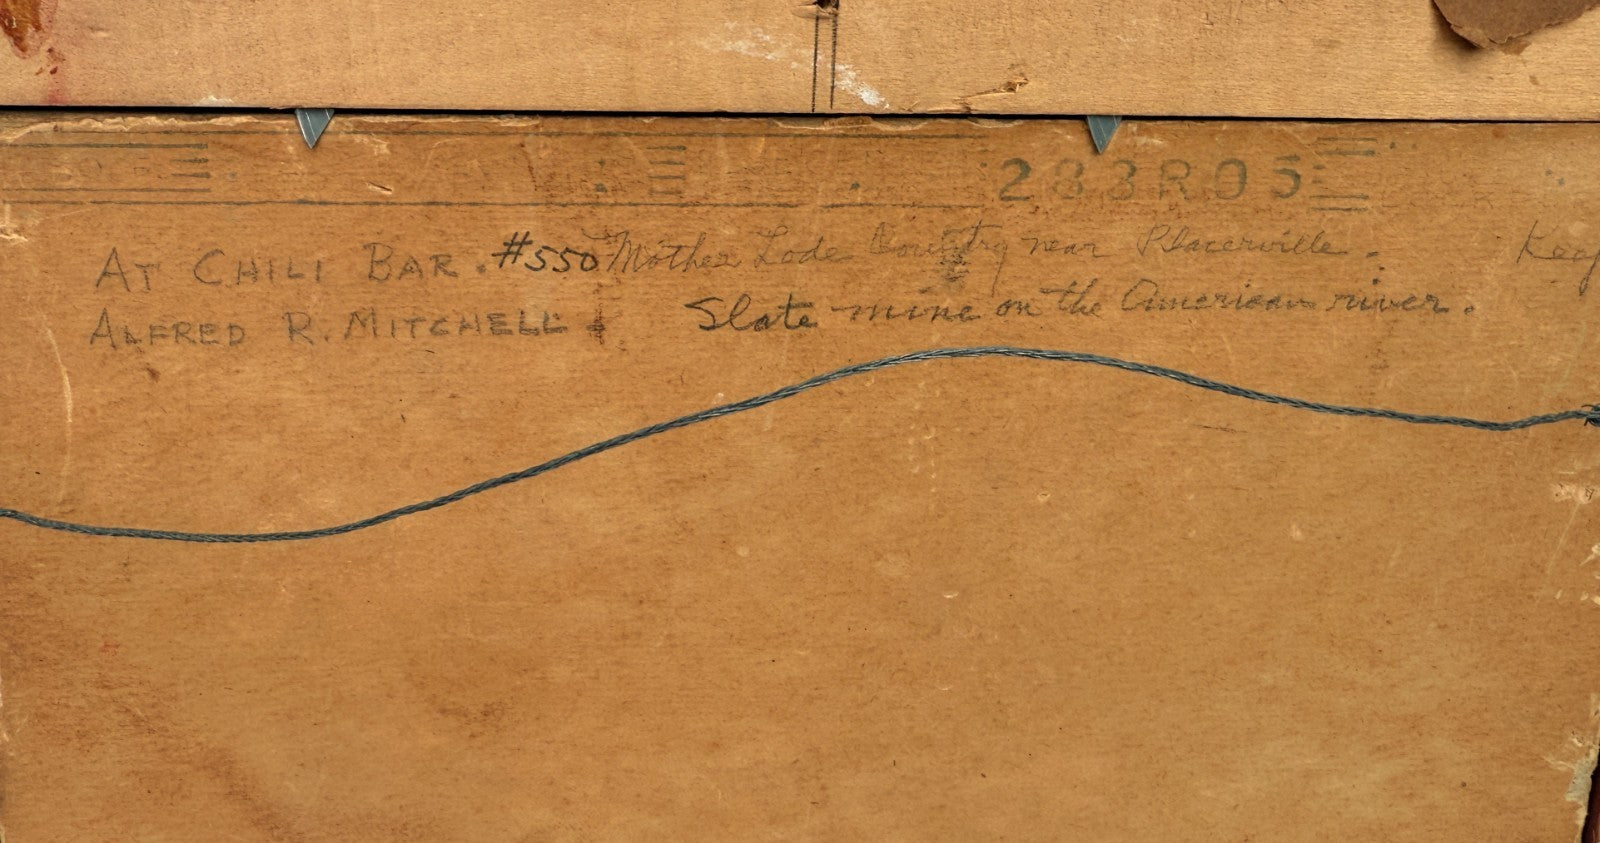 283R05
AT CHILI BAR. #550 Mother Lode Country near Placerville.
ALFRED R. MITCHELL Slate mine on the American river.